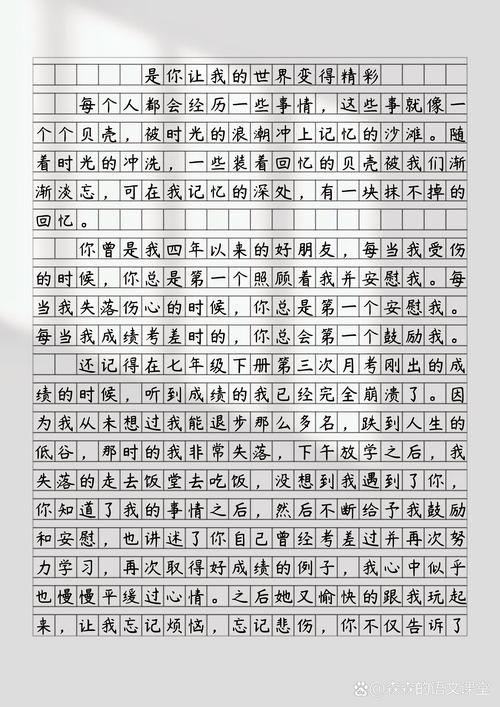 是你让我的世界变得精彩
每个人都会经历一些事情，这些事就像一
个个贝壳，被时光的浪潮冲上记忆的沙滩。随
着时光的冲洗，一些装着回忆的贝壳被我们渐
渐淡忘，可在我记忆的深处，有一块抹不掉的
回忆。
你曾是我四年以来的好朋友，每当我受伤
的时候，你总是第一个照顾着我并安慰我。每
当我失落伤心的时候，你总是第一个安慰我。
每当我成绩考差时的，你总会第一个鼓励我。
还记得在七年级下册第三次月考刚出的成
绩的时候，听到成绩的我已经完全崩溃了。因
为我从未想过我能退步那么多名，跌到人生的
低谷，那时的我非常失落，下午放学之后，我
失落的走去饭堂去吃饭，没想到我遇到了你，
你知道了我的事情之后，然后不断给予我鼓励
和安慰，也讲述了你自己曾经考差过并再次努
力学习，再次取得好成绩的例子，我心中似乎
也慢慢平缓过心情。之后她又愉快的跟我玩起
来，让我忘记烦恼，忘记悲伤，你不仅告诉了
森森的语文课堂